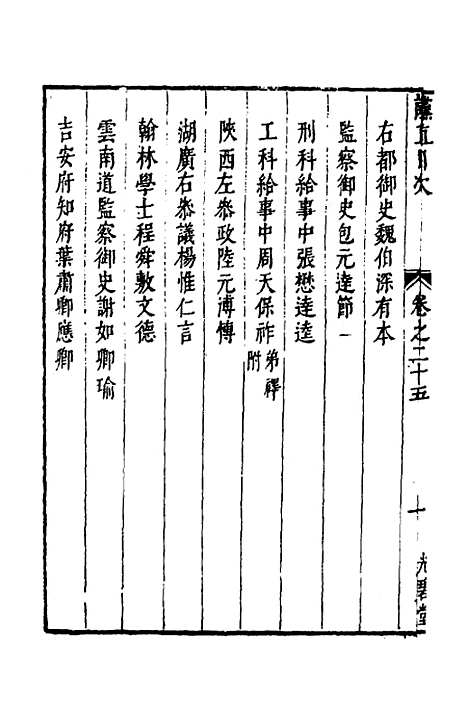 右都御史魏伯深有本
監察御史包元達節一
刑科給事中張懋逵逵
工科給事中周天保祚弟禪附
陝西左叅政陸元溥愽
湖廣右叅議楊惟仁言
翰林學士程舜敷文德
雲南道監察御史謝如卿瑜
吉安府知府葉肅卿應卿
目次
卷之二十五
十
光碧堂